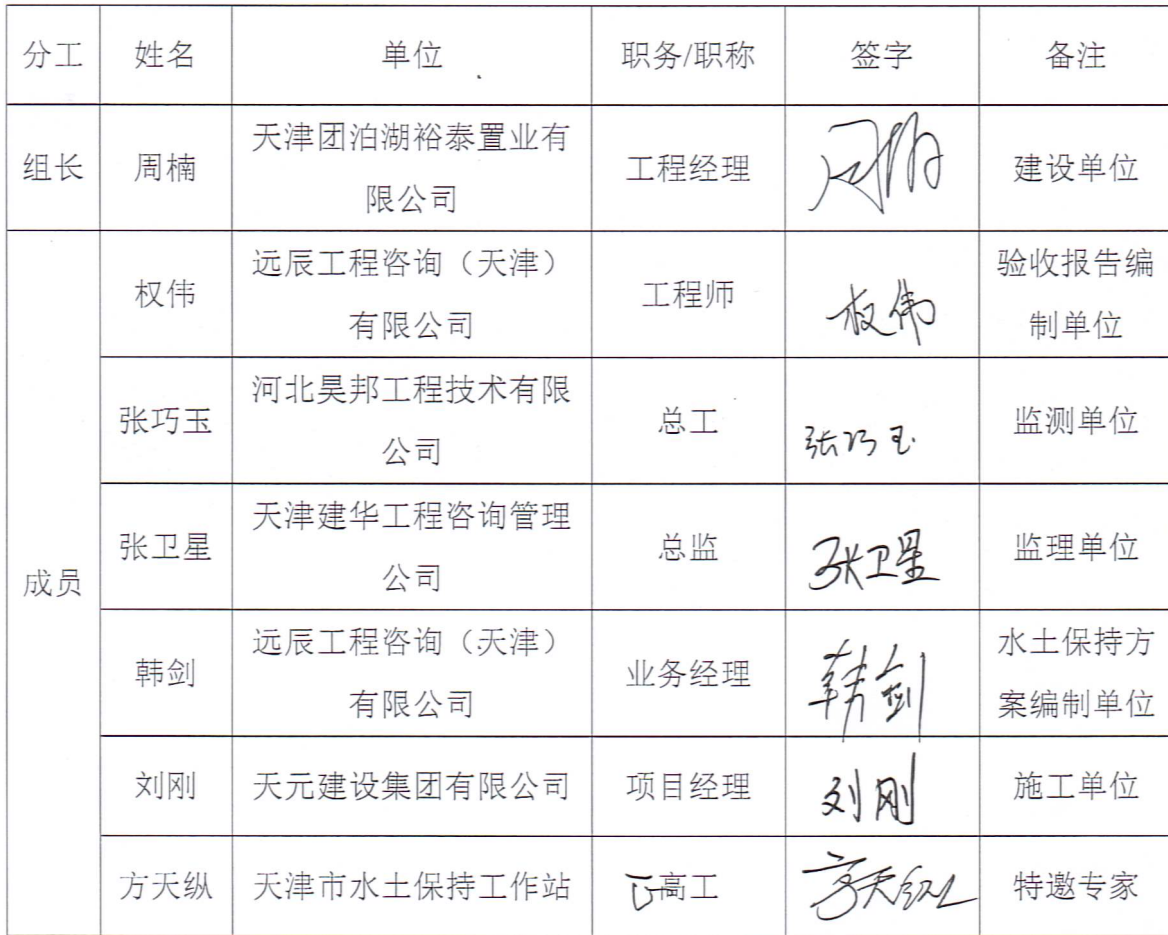 分工 姓名 单位 职务/职称 签字 备注
组长 周楠 天津团泊湖裕泰置业有 工程经理 周楠 建设单位
限公司
权伟 远辰工程咨询（天津） 工程师 权伟 验收报告编
有限公司 制单位
张巧玉 河北昊邦工程技术有限 总工 张巧玉 监测单位
公司
成员 张卫星 天津建华工程咨询管理 总监 张卫星 监理单位
公司
韩剑 远辰工程咨询（天津） 业务经理 韩剑 水土保持方
有限公司 案编制单位
刘刚 天元建设集团有限公司 项目经理 刘刚 施工单位
方天纵 天津市水土保持工作站 正高工 方天纵 特邀专家